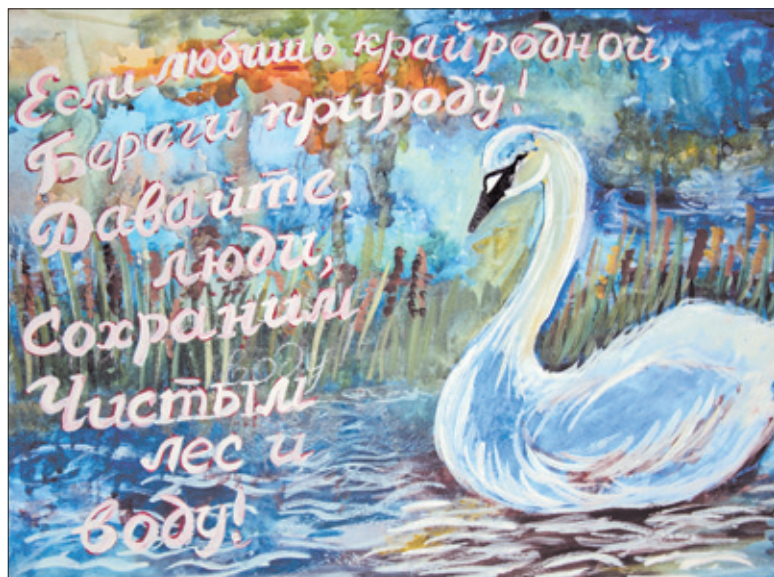 Если любишь край родной,
Береги природу!
Давайте,
люди,
сохраним
Чистым
лес и
воду!
воду